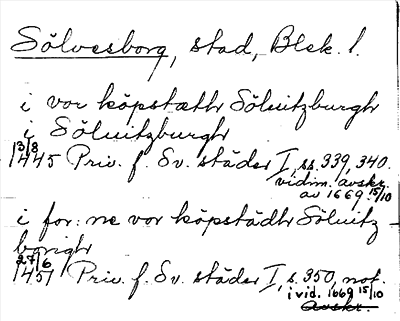 Sölvesborg, stad, Blek. l.
i vor köpstæth Söluitzburgh
i Söluitzburgh
13/8
1445 Priv. f. Sv. städer I, ss. 339, 340.
vidim. avskr.
av 1669 15/10
i for: ne vor köpstädh Söluitz-
borigh
27/6
1451 Priv. f. Sv. städer I, s. 350, not.
i vid. 1669 15/10
Avskr.